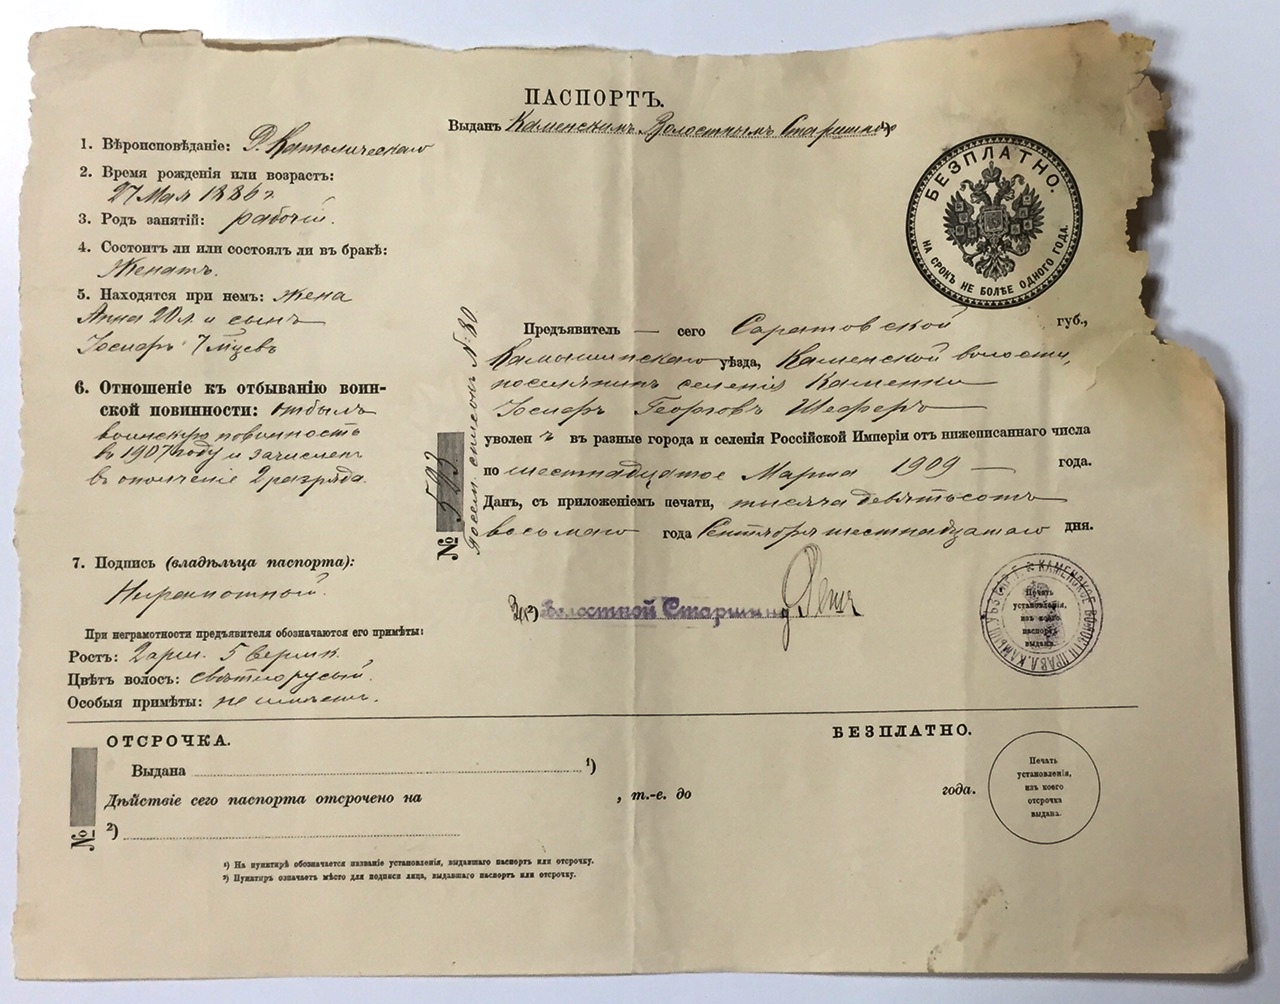 ПАСПОРТЪ.
Выданъ Каменскимъ Волостнымъ Старшиною
БЕЗПЛАТНО.
НА СРОКЪ НЕ БОЛѢЕ ОДНОГО ГОДА.
1. Вѣроисповѣданіе: Р. Католическаго
2. Время рожденія или возрастъ:
27 Мая 1886 г.
3. Родъ занятій: рабочій.
4. Состоитъ ли или состоялъ ли въ бракѣ:
Женатъ.
5. Находятся при немъ: жена
Анна 20 л. и сынъ
7 мѣсяцевъ
6. Отношеніе къ отбыванію воин-
ской повинности: отбылъ
воинскую повинность
въ 1907 году и зачисленъ
въ ополченіе 2 разряда.
7. Подпись (владѣльца паспорта):
Неграмотный.
При неграмотности предъявителя обозначаются его примѣты:
Ростъ: 2 арш. 5 вершк.
Цвѣтъ волосъ: свѣтлорусый.
Особыя примѣты: не имѣетъ.
№ 593
Посем. списокъ № 80
Предъявитель — сего Саратовской губ.,
Камышинскаго уѣзда, Каменской волости,
поселянинъ селенія Каменки
Георговъ Шеферъ
уволенъ въ разные города и селенія Россійской Имперіи отъ нижеписаннаго числа
по шестнадцатое Марта 1909 — года.
Данъ, съ приложеніемъ печати, тысяча девятьсотъ
восьмаго года Сентября шестнадцатаго дня.
²) Волостной Старшина
Печать
установленія,
изъ коего
паспортъ
выданъ.
ОТСРОЧКА.
БЕЗПЛАТНО.
Выдана ¹)
Дѣйствіе сего паспорта отсрочено на , т.-е. до года.
²)
№
Печать
установленія,
изъ коего
отсрочка
выдана.
¹) На пунктирѣ обозначается названіе установленія, выдавшаго паспортъ или отсрочку.
²) Пунктиръ означаетъ мѣсто для подписи лица, выдавшаго паспортъ или отсрочку.